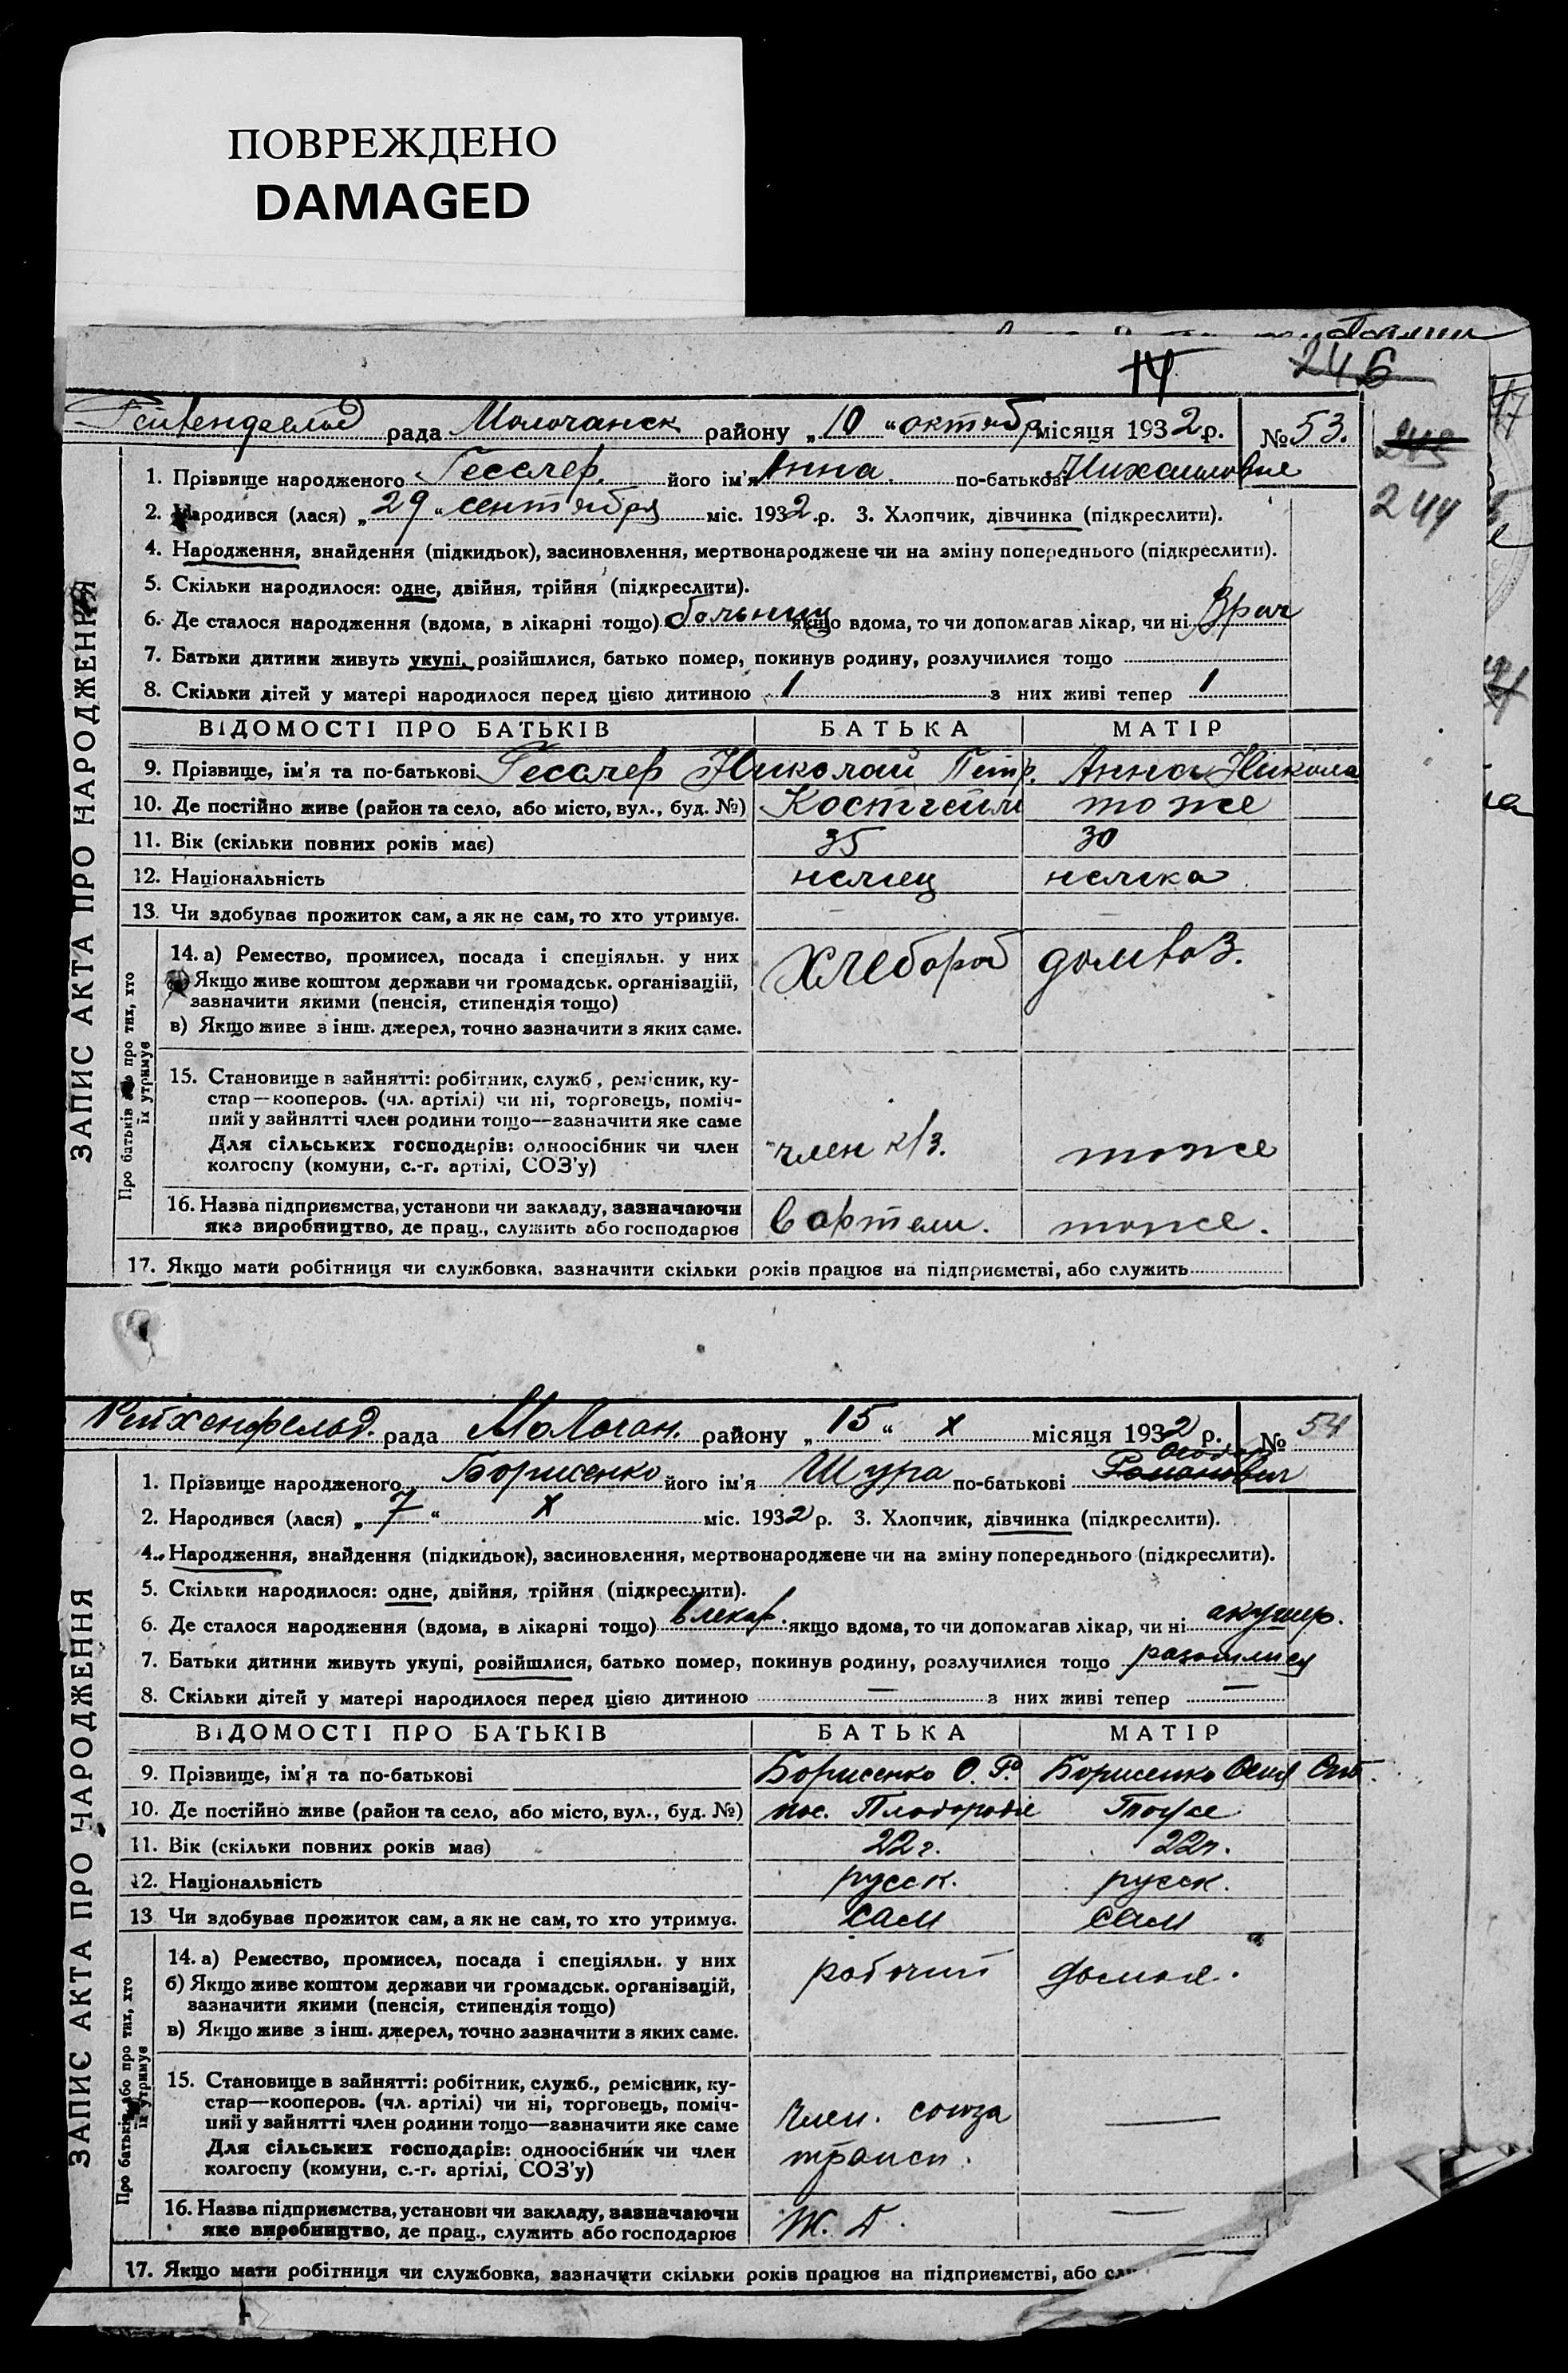 ПОВРЕЖДЕНО
DAMAGED
14 246
рада Молочанск району „10“ октябр місяця 1932 р. № 53.
244
ЗАПИС АКТА ПРО НАРОДЖЕННЯ
1. Прізвище народженого Гесслер. його ім'я Анна. по-батькові
2. Народився (лася) „29“ сентября міс. 1932 р. 3. Хлопчик, дівчинка (підкреслити).
4. Народження, знайдення (підкидьок), засиновлення, мертвонароджене чи на зміну попереднього (підкреслити).
5. Скільки народилося: одне, двійня, трійня (підкреслити).
6. Де сталося народження (вдома, в лікарні тощо) больниц якщо вдома, то чи допомагав лікар, чи ні Врач
7. Батьки дитини живуть укупі, розійшлися, батько помер, покинув родину, розлучилися тощо
8. Скільки дітей у матері народилося перед цією дитиною 1 з них живі тепер 1
ВІДОМОСТІ ПРО БАТЬКІВ БАТЬКА МАТІР
9. Прізвище, ім'я та по-батькові Гесслер Николай Петр. Анна Никола
10. Де постійно живе (район та село, або місто, вул., буд. №) Костгейм тоже
11. Вік (скільки повних років має) 35 30
12. Національність немец немка
13. Чи здобуває прожиток сам, а як не сам, то хто утримує. — —
Про батьків або про тих, хто їх утримує
14. а) Ремество, промисел, посада і спеціяльн. у них хлебороб домхоз.
Якщо живе коштом держави чи громадськ. організацій,
зазначити якими (пенсія, стипендія тощо)
в) Якщо живе з інш. джерел, точно зазначити з яких саме.
15. Становище в зайнятті: робітник, служб., ремісник, ку-
стар—кооперов. (чл. артілі) чи ні, торговець, поміч-
ний у зайнятті член родини тощо—зазначити яке саме
Для сільських господарів: одноосібник чи член член к/з. тоже
колгоспу (комуни, с.-г. артілі, СОЗ'у)
16. Назва підприємства, установи чи закладу, зазначаючи
яке виробництво, де прац., служить або господарює в артели. тоже.
17. Якщо мати робітниця чи службовка, зазначити скільки років працює на підприємстві, або служить
Рейхенфельд. рада Молочан. району „15“ X місяця 1932 р. № 54
ЗАПИС АКТА ПРО НАРОДЖЕННЯ
1. Прізвище народженого Борисенко його ім'я Шура по-батькові Романович
2. Народився (лася) „7“ X міс. 1932 р. 3. Хлопчик, дівчинка (підкреслити).
4. Народження, знайдення (підкидьок), засиновлення, мертвонароджене чи на зміну попереднього (підкреслити).
5. Скільки народилося: одне, двійня, трійня (підкреслити).
6. Де сталося народження (вдома, в лікарні тощо) в лекар. якщо вдома, то чи допомагав лікар, чи ні акушер.
7. Батьки дитини живуть укупі, розійшлися, батько помер, покинув родину, розлучилися тощо разошлись
8. Скільки дітей у матері народилося перед цією дитиною — з них живі тепер —
ВІДОМОСТІ ПРО БАТЬКІВ БАТЬКА МАТІР
9. Прізвище, ім'я та по-батькові Борисенко О. Р. Борисенко
10. Де постійно живе (район та село, або місто, вул., буд. №) пос. Плодородie тоже
11. Вік (скільки повних років має) 22 г. 22 г.
12. Національність русск. русск.
13 Чи здобуває прожиток сам, а як не сам, то хто утримує. сам сам
Про батьків або про тих, хто їх утримує
14. а) Ремество, промисел, посада і спеціяльн. у них рабочий
б) Якщо живе коштом держави чи громадськ. організацій,
зазначити якими (пенсія, стипендія тощо)
в) Якщо живе з інш. джерел, точно зазначити з яких саме.
15. Становище в зайнятті: робітник, служб., ремісник, ку-
стар—кооперов. (чл. артілі) чи ні, торговець, поміч-
ний у зайнятті член родини тощо—зазначити яке саме член. союза —
Для сільських господарів: одноосібник чи член трансп.
колгоспу (комуни, с.-г. артілі, СОЗ'у)
16. Назва підприємства, установи чи закладу, зазначаючи
яке виробництво, де прац., служить або господарює Ж. Д. —
17. Якщо мати робітниця чи службовка, зазначити скільки років працює на підприємстві, або